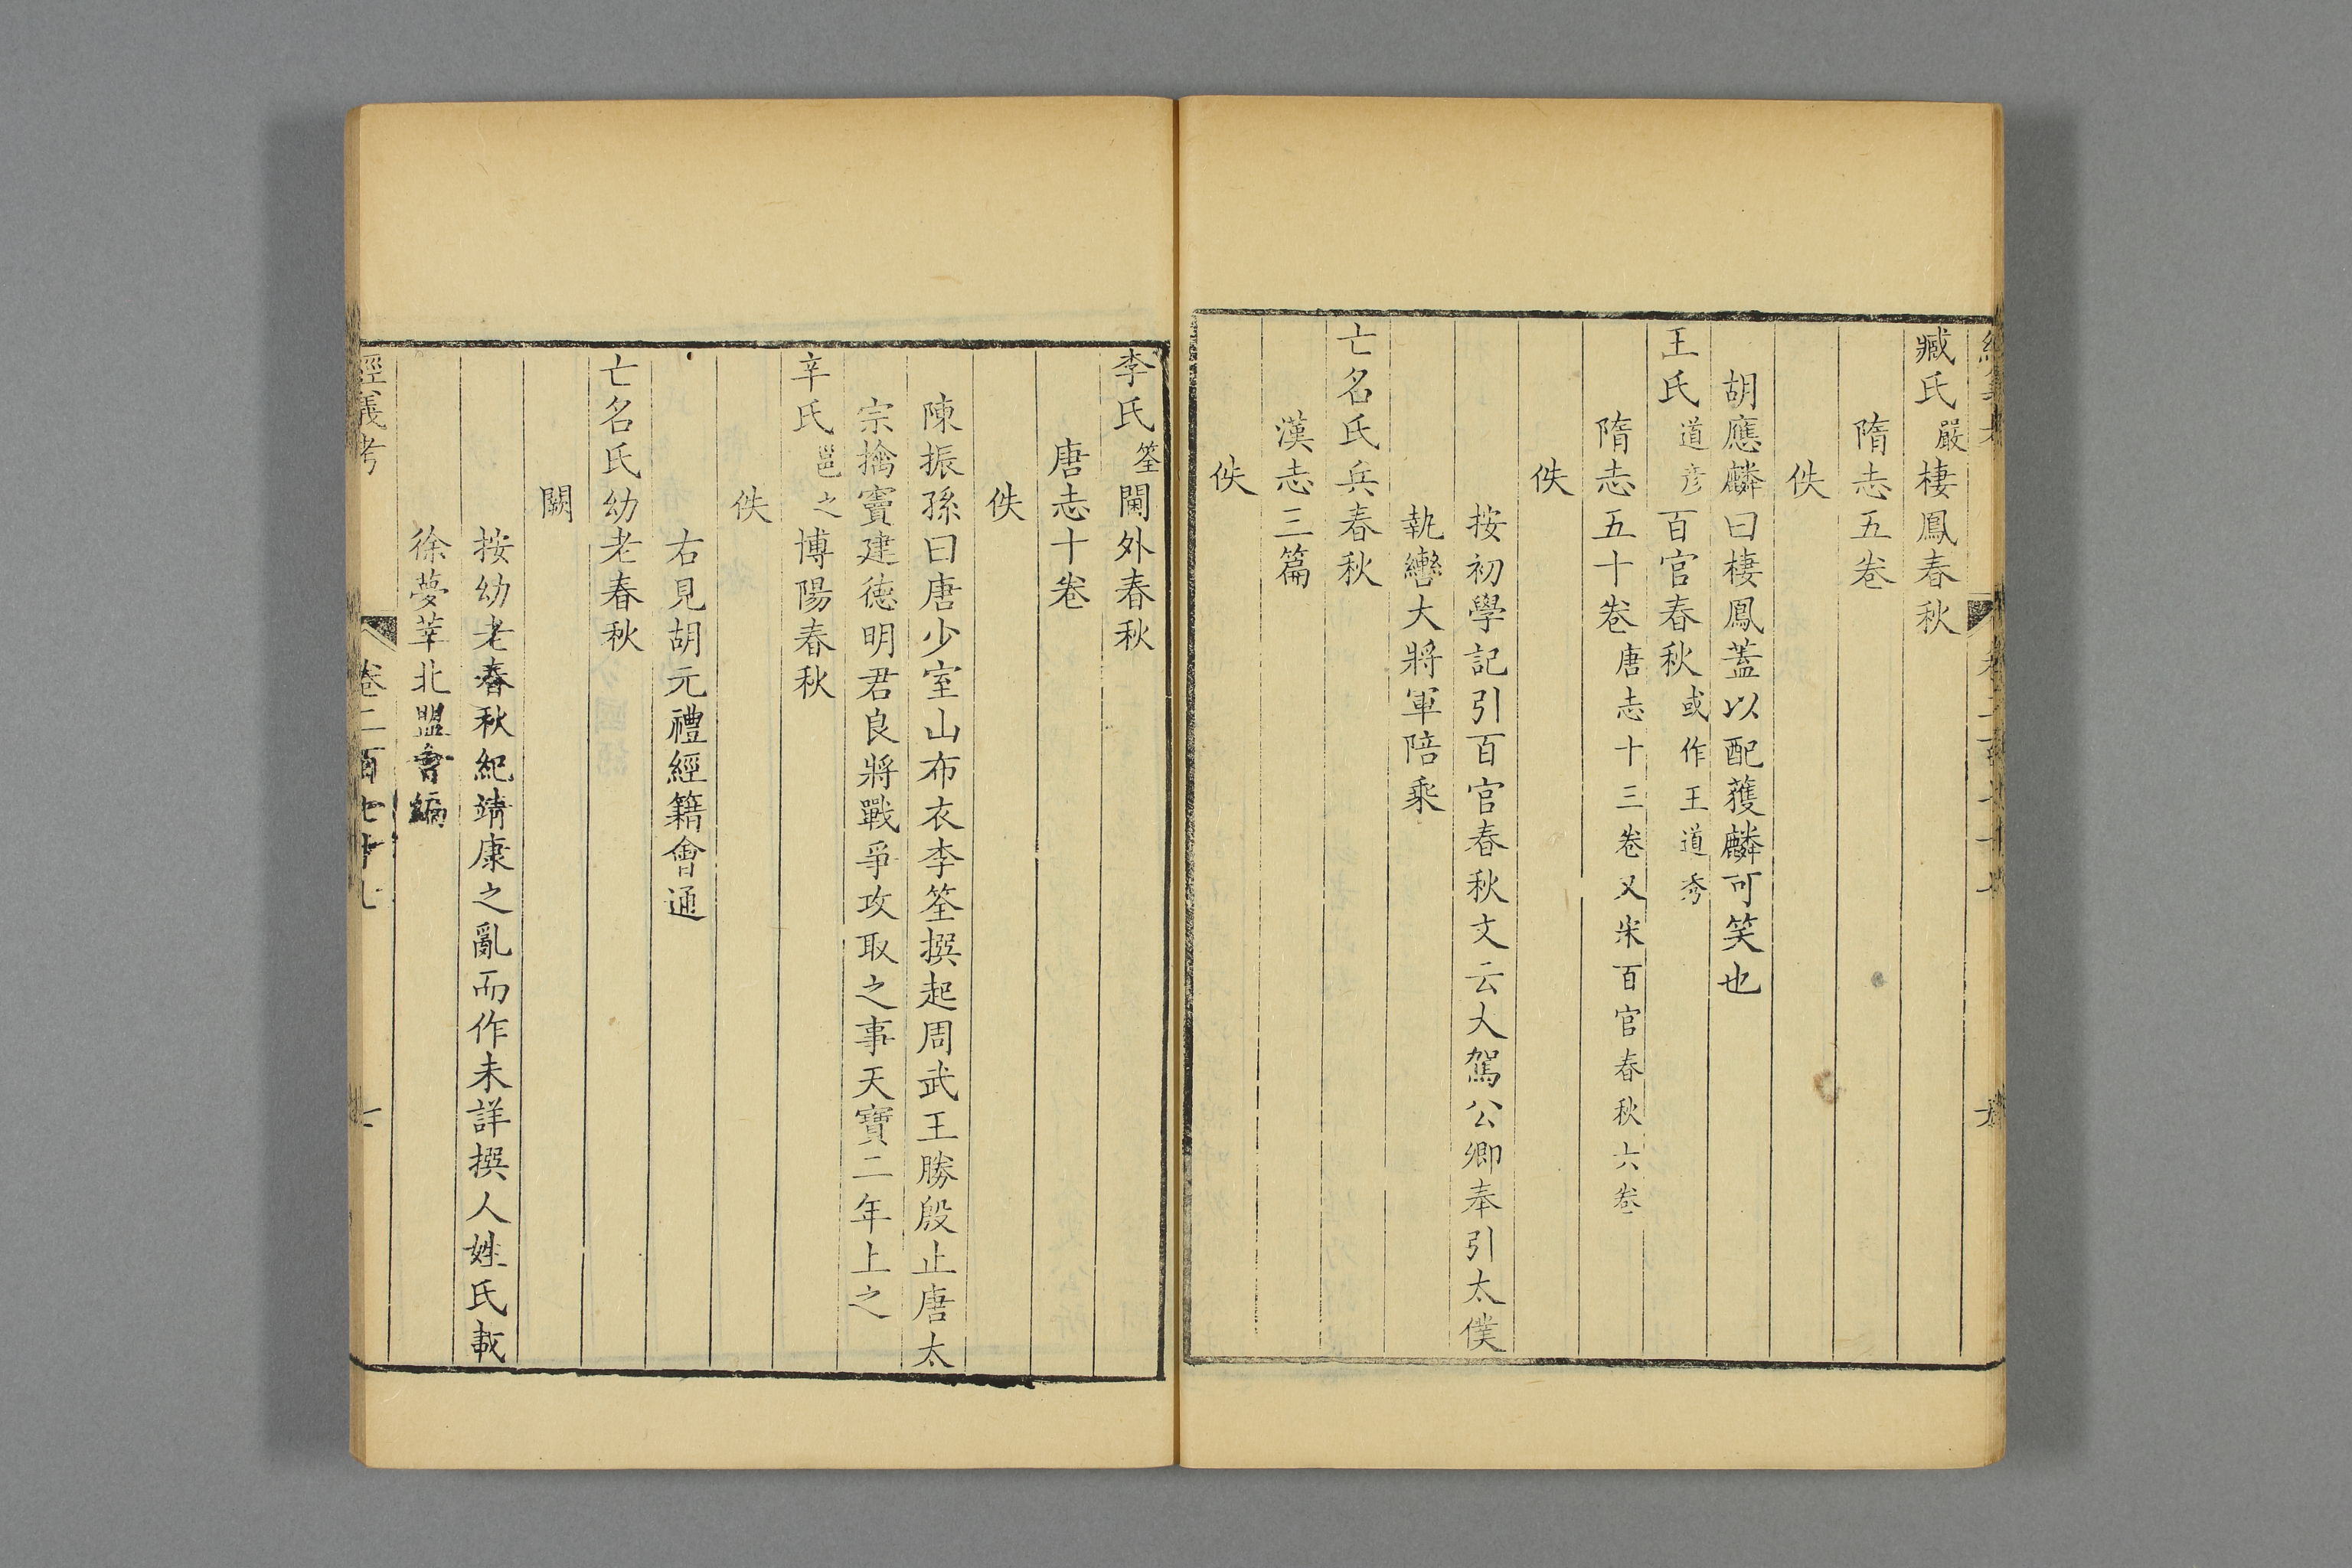 臧氏嚴棲鳳春秋
隋志五卷
佚
胡應麟曰棲鳳蓋以配獲麟可笑也
王氏道彦百官春秋或作王道秀
隋志五十卷唐志十三卷又宋百官春秋六卷
佚
按初學記引百官春秋文云大駕公卿奉引太僕
執轡大將軍陪乘
亡名氏兵春秋
漢志三篇
佚
李氏筌閫外春秋
唐志十卷
佚
陳振孫曰唐少室山布衣李筌撰起周武王勝殷止唐太
宗擒竇建德明君良將戰爭攻取之事天寶二年上之
辛氏邕之博陽春秋
佚
右見胡元禮經籍會通
亡名氏幼老春秋
闕
按幼老春秋紀靖康之亂而作未詳撰人姓氏載
徐夢莘北盟會編
經義考
卷二百七十七